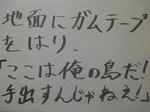 地面にガムテープ
をはり、
「ここは俺の島だ!
手出すんじゃねえ!」